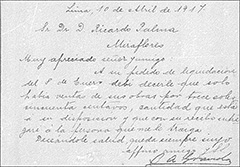 Lima, 10 de Abril de 1917
Sr. Dr. D. Ricardo Palma
Miraflores
Muy apreciado señor y amigo:
A su pedido de liquidación
del 8 de Enero debí decirle que solo
había venta de sus obras por trece soles,
cincuenta centavos, cantidad que está
a su disposición y que con su recibo entre
garé a la persona que me lo traiga.
Deseándole salud, queda siempre suyo
affmo. amigo